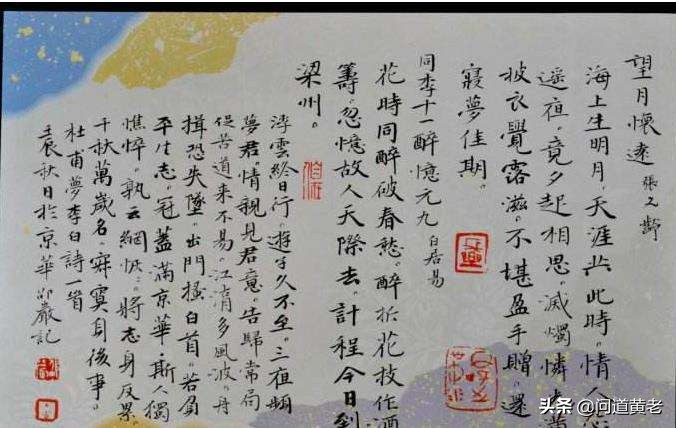 望月懷遠 張九齡
海上生明月。天涯共此時。情人怨
遥夜。竟夕起相思。滅燭憐光滿
披衣覺露滋。不堪盈手贈。還
寢夢佳期。
同李十一醉憶元九 白居易
花時同醉破春愁。醉折花枝作酒
籌。忽憶故人天際去。計程今日到
梁州。
浮雲終日行。遊子久不至。三夜頻
夢君。情親見君意。告歸常局
促苦道来不易。江湖多風波。舟
楫恐失墜。出門搔白首。若負
平生志。冠蓋滿京華。斯人獨
憔悴。孰云網恢。將老身反累。
千秋萬歲名。寂寞身後事。
杜甫夢李白詩一首
壬辰秋日於京華邵巖記
头条 @问道黄老